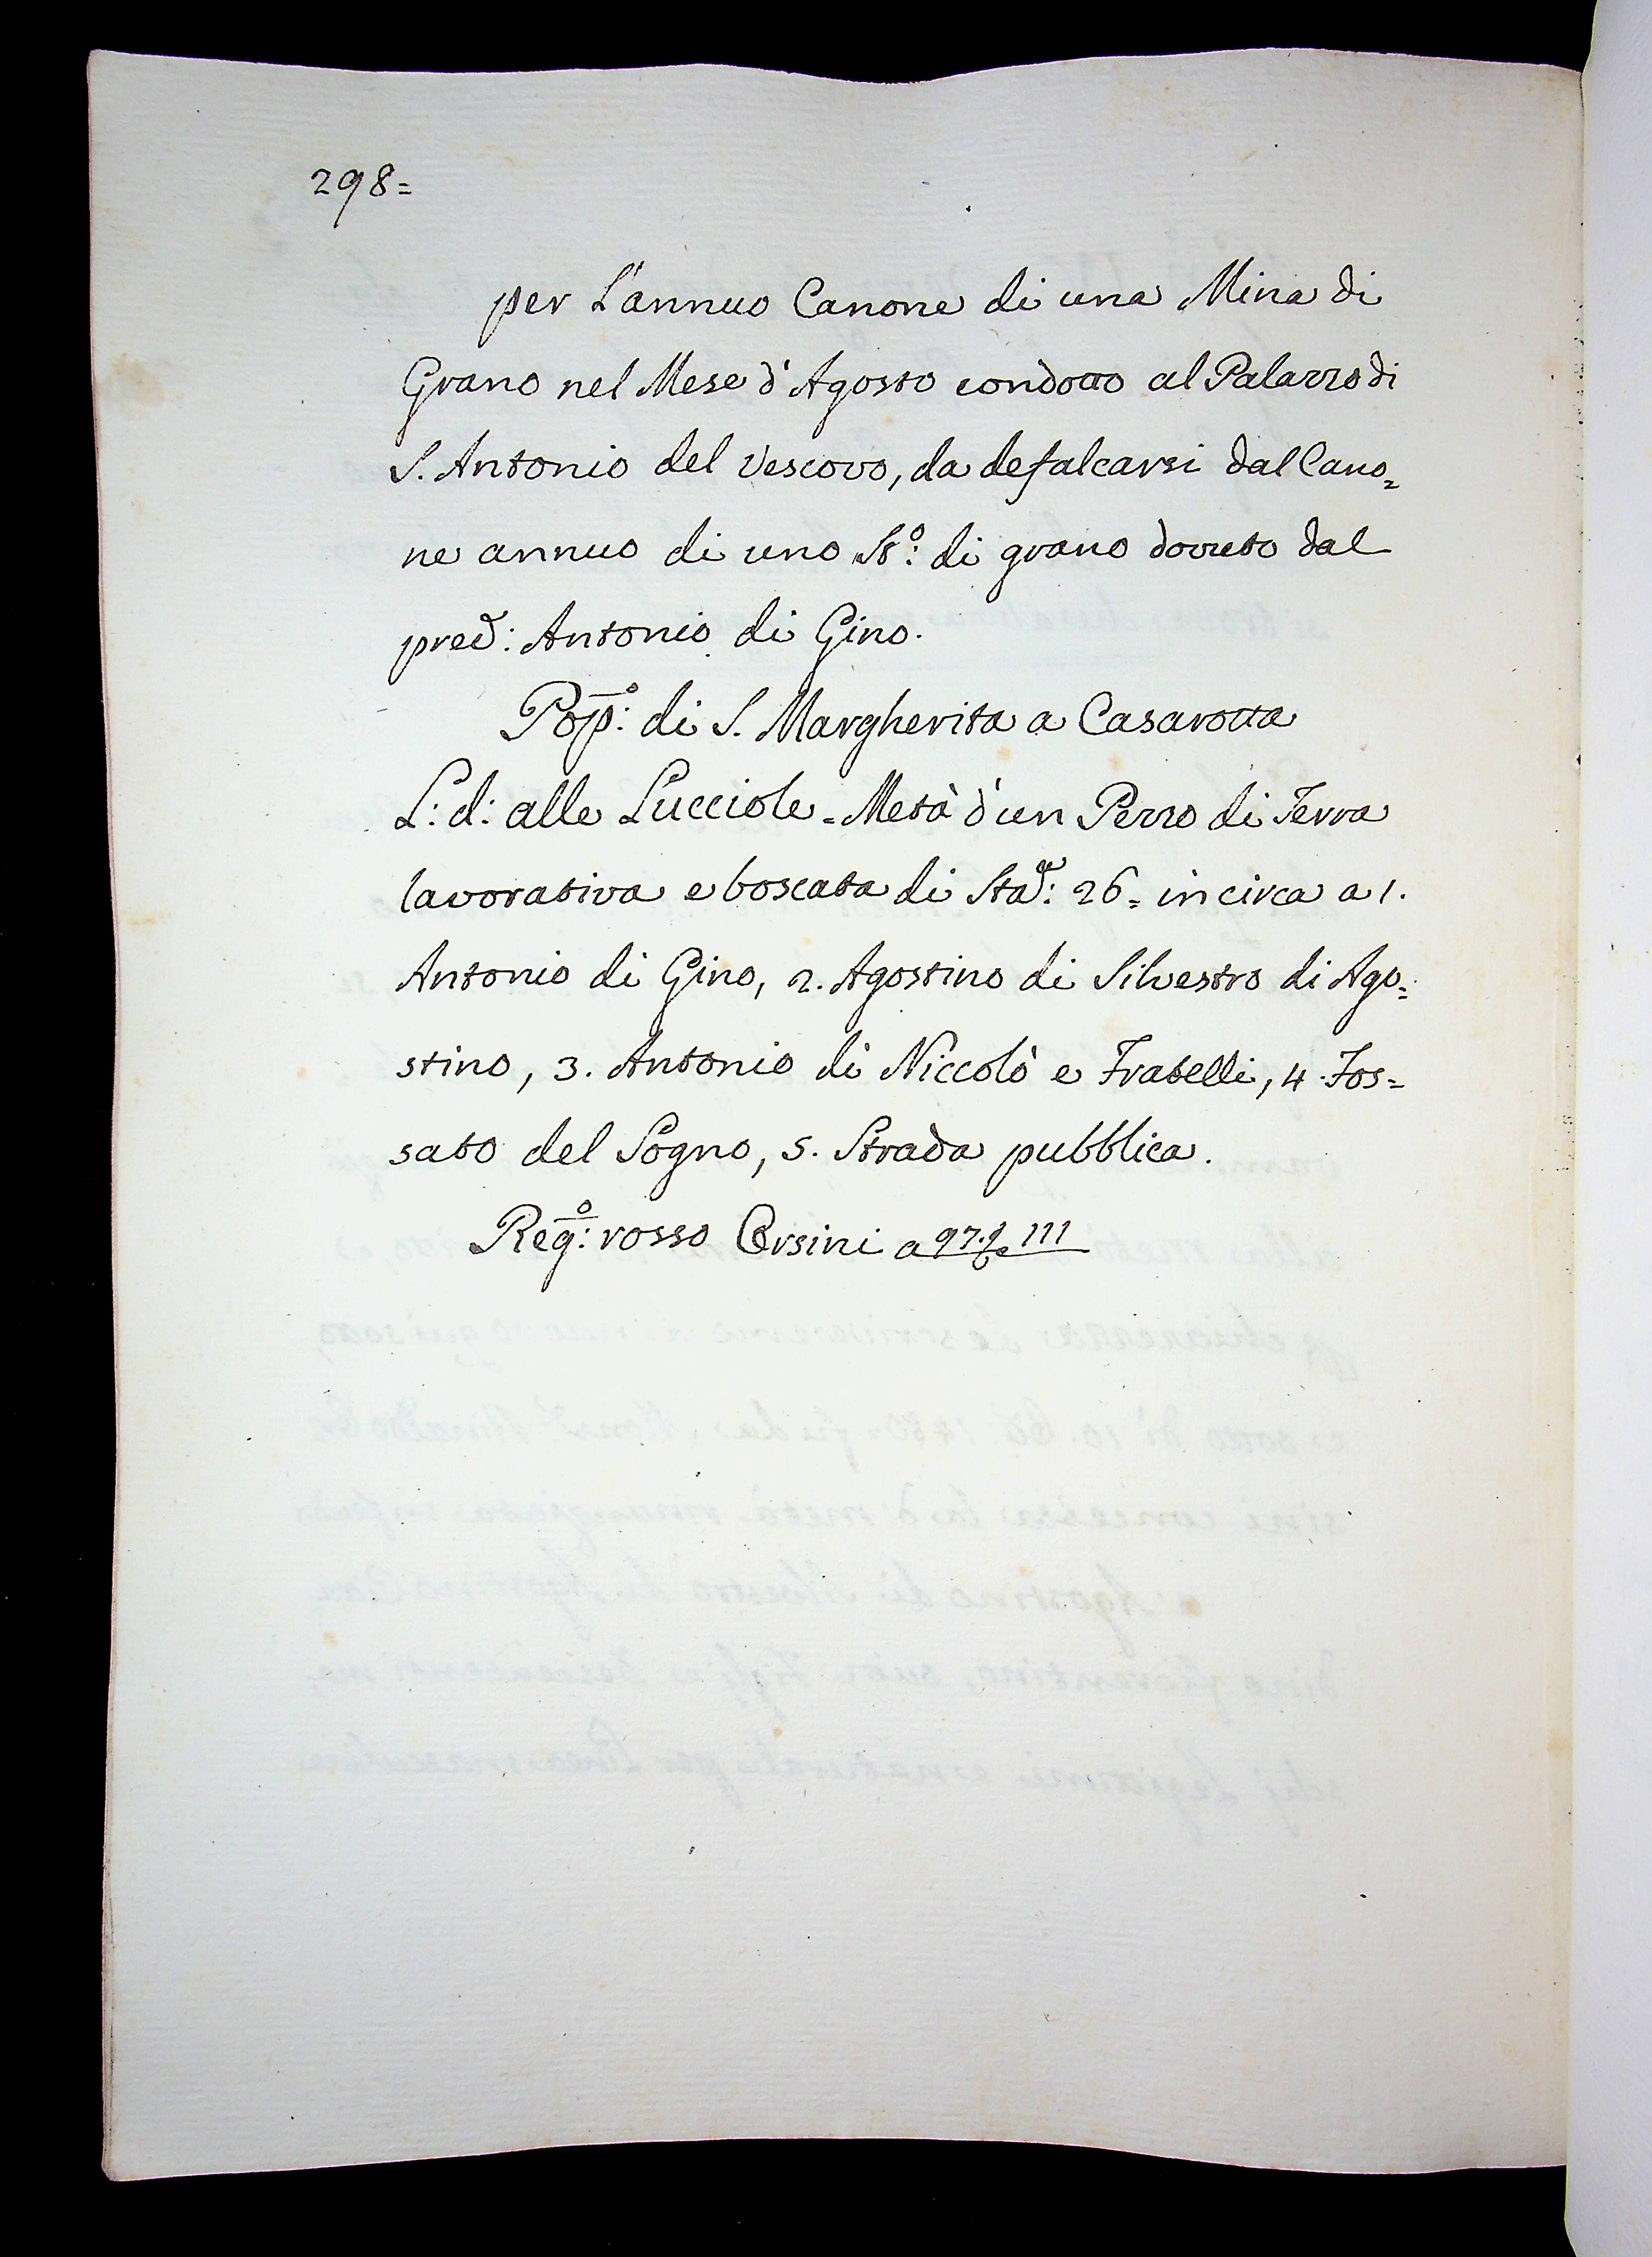 298=
per L'annuo Canone di una Mina di
Grano nel Mese d'Agosto condotto al Palazzo di
S. Antonio del Vescovo, da defalcarsi dal Cano=
ne annuo di uno St.º: di grano dovuto dal
pred: Antonio di Gino.
Pop.º: di S. Margherita a Casarotta
L: d: alle Lucciole = Metà d'un Pezzo di Terra
lavorativa e boscata di Stad.ª: 26= in circa a 1.
Antonio di Gino, 2. Agostino di Silvestro di Ago=
stino, 3. Antonio di Niccolò e Fratelli, 4. Fos=
sato del Sogno, 5. Strada pubblica.
Reg.º: rosso Orsini a 97. f. 111